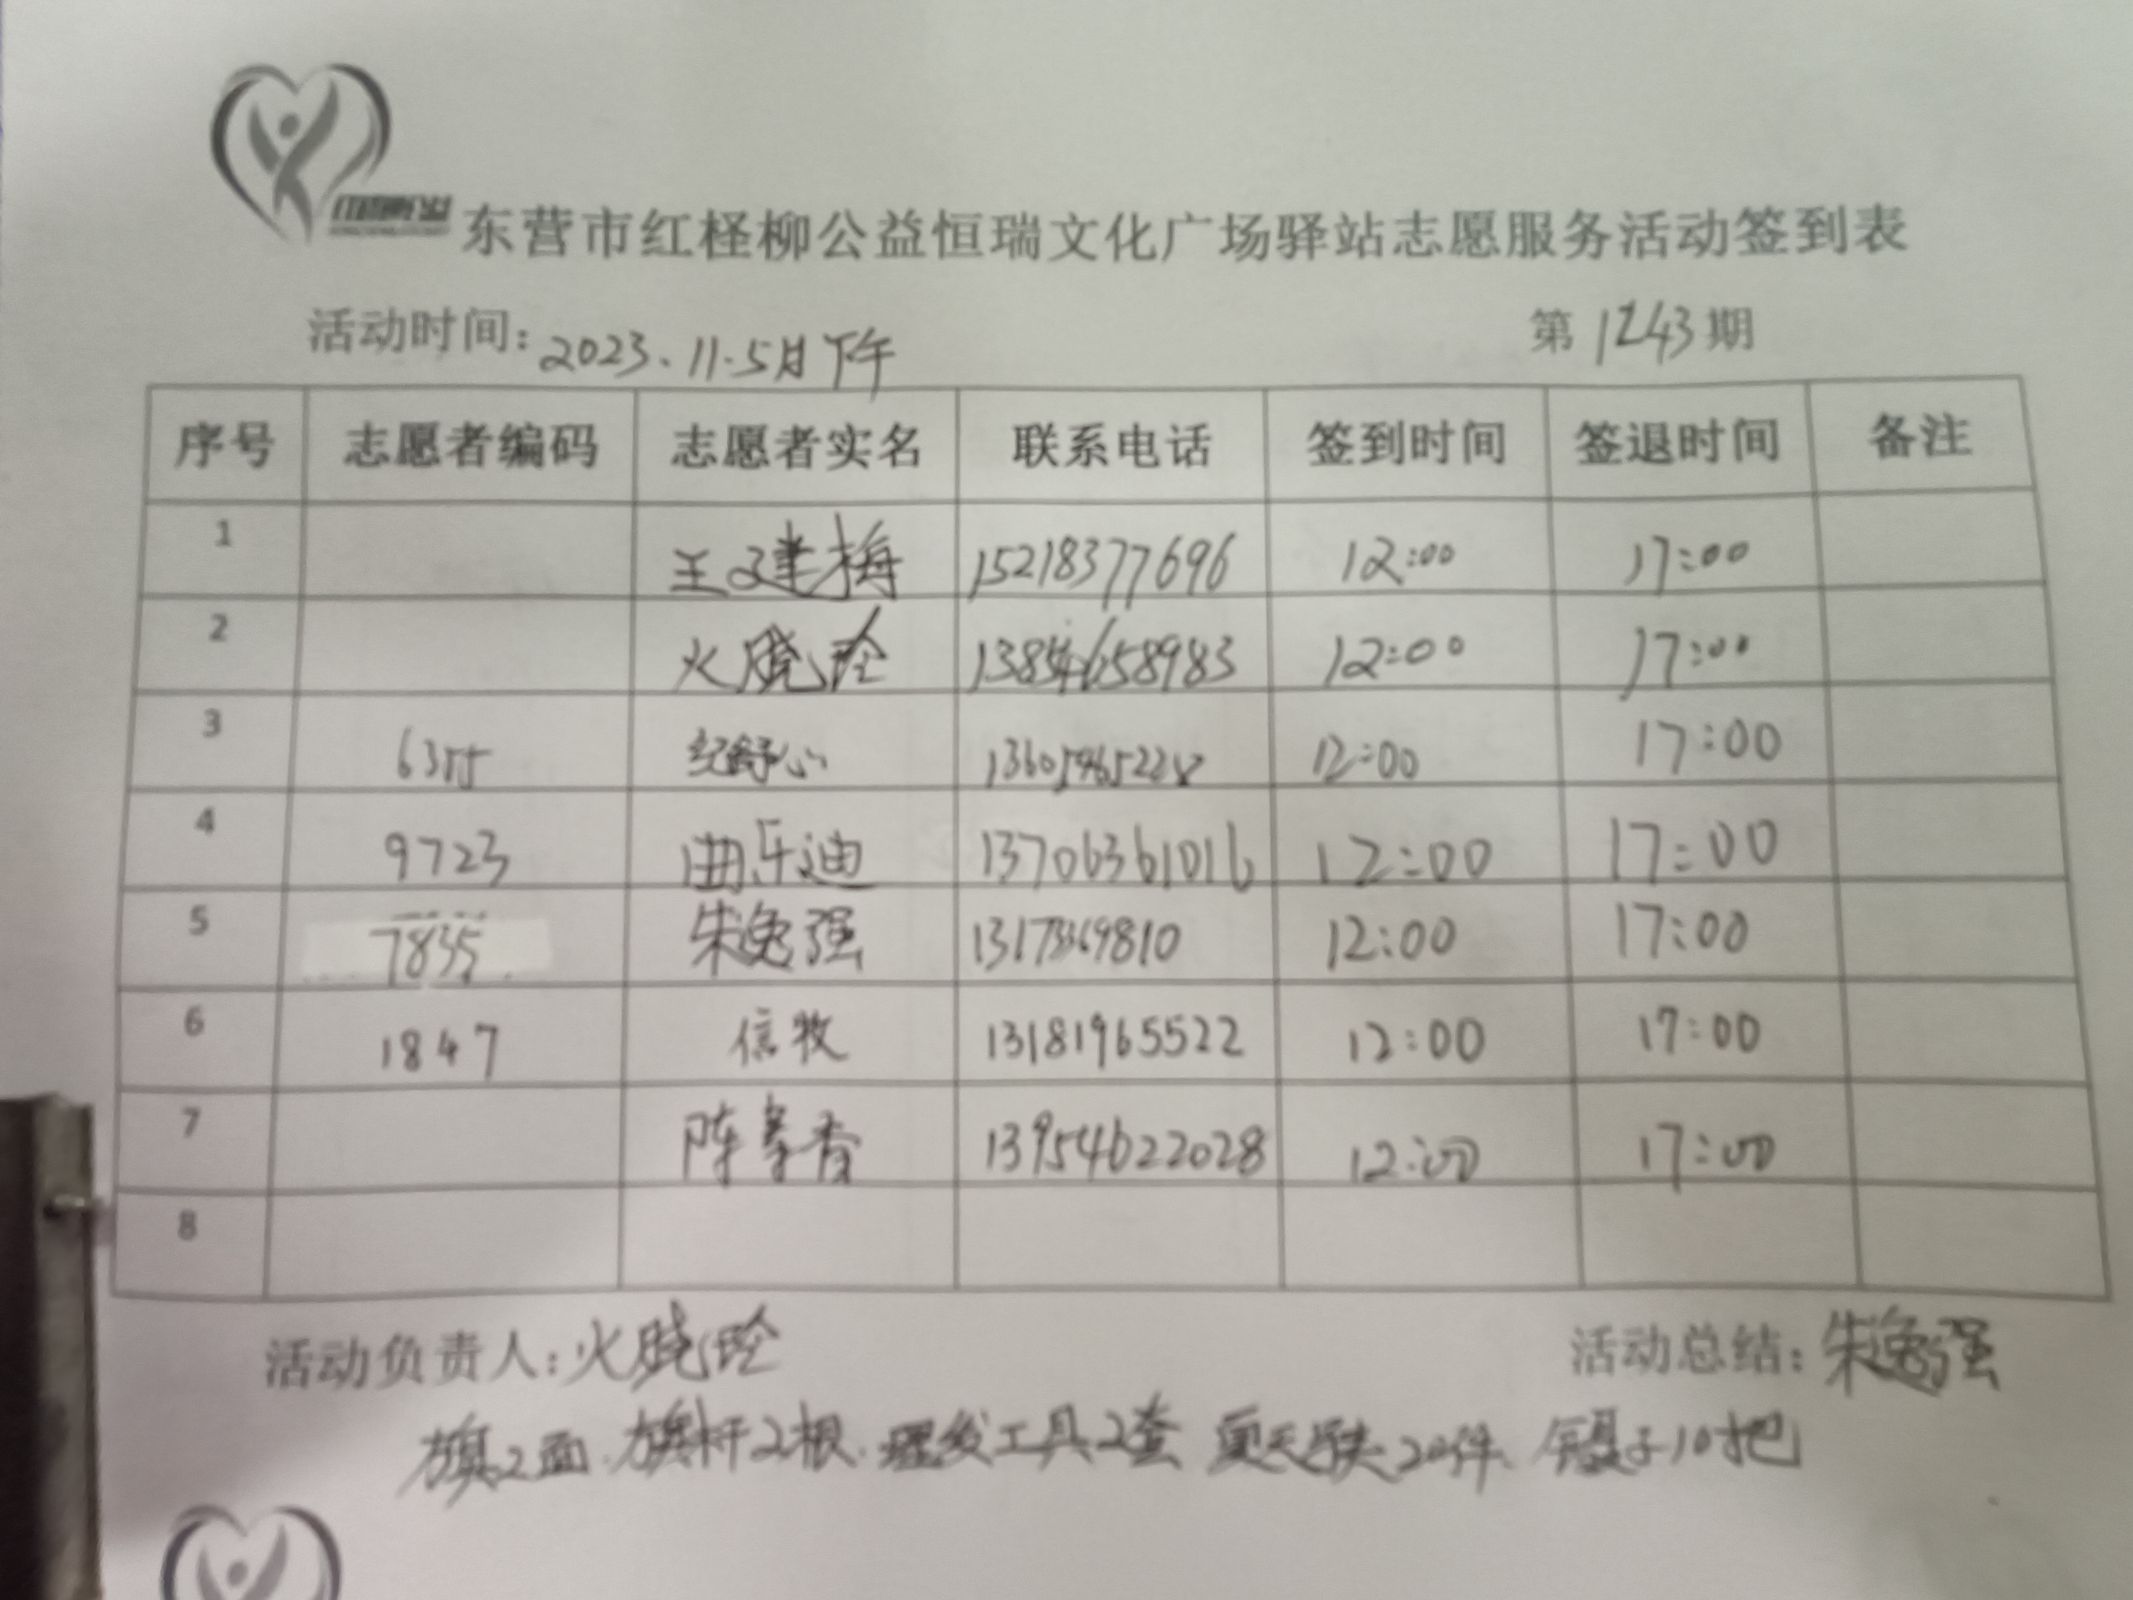 东营市红柽柳公益恒瑞文化广场驿站志愿服务活动签到表
活动时间：2023.11.5日下午 第1243期
序号 志愿者编码 志愿者实名 联系电话 签到时间 签退时间 备注
1 王建梅 15218377696 12:00 17:00
2 火晓玲 13854658983 12:00 17:00
3 6355 纪舒心 12:00 17:00
4 9723 曲乐迪 13706361016 12:00 17:00
5 7835 朱逸强 12:00 17:00
6 1847 信牧 13181965522 12:00 17:00
7 陈 香 13954622028 12:00 17:00
8
活动负责人：火晓玲 活动总结：朱逸强
旗2面、旗杆2根、理发工具2套 夏天 20件、镊子10把